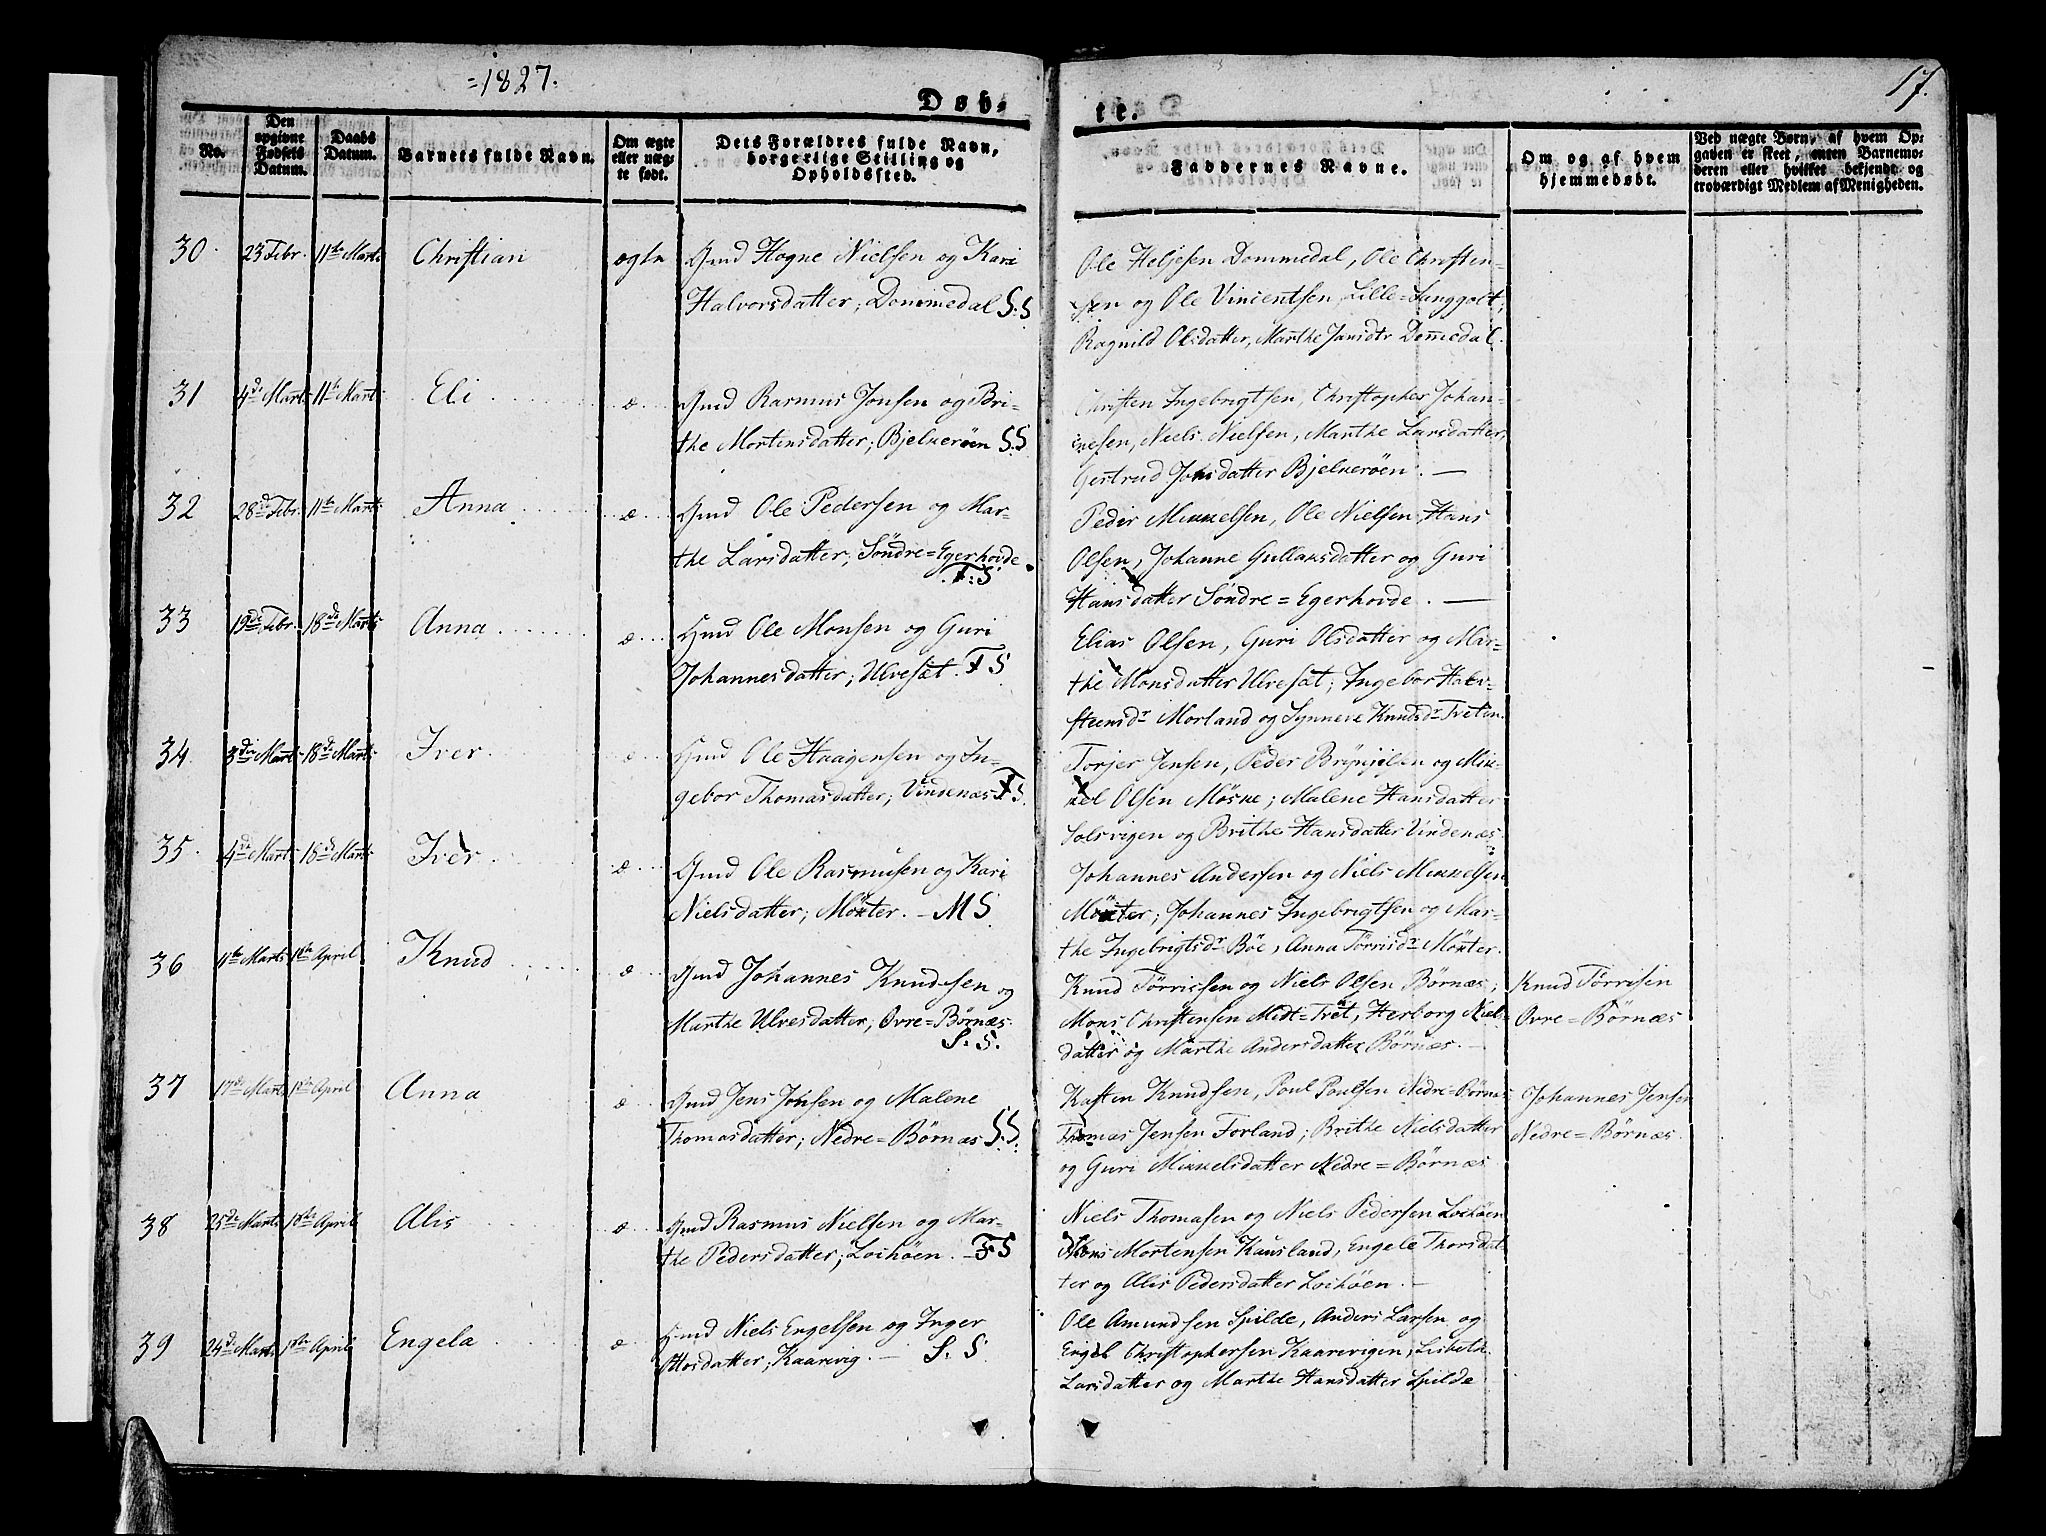 =1827.
17.
Døb-
te.
No.
Den
opgivne
Fødsels
Datum.
Daabs
Datum.
Barnets fulde Navn.
Om ægte
eller uæg-
te født.
Dets Forældres fulde Navn,
borgerlige Stilling og
Opholdssted.
Faddernes Navne.
Om og af hvem
hjemmedøbt.
Ved uægte Børn, af hvem Op-
gaven er skeet, enten Barnemo-
deren eller hvilket bekjendt og
troværdigt Medlem af Menigheden.
30. 23 Febr. 11te Marts Christian ægte Gmd Hogne Nielsen og Kari
Halvorsdatter; Dommedal S:S
Ole Heljesen Dommedal, Ole Christen-
sen og Ole Vincentsen Lille=Sunggolt,
Ragnild Olsdatter, Marthe Jansdtr Dommedal.
31 4de Marts 11te Marts Eli æ Gmd Rasmus Jonsen og Bri-
the Mortensdatter; Bjelkerøen S:S
Christen Ingebrigtsen, Christopher Johan-
nesen, Niels Nielsen, Marthe Larsdatter,
Gertrud Jonsdatter Bjelkerøen. —
32 28de Febr. 11te Marts Anna æ Gmd Ole Pedersen og Mar-
the Larsdatter; Søndre=Egerhovde.
F:S
Peder Mikkelsen, Ole Nielsen, Hans
Olsen, Johanne Gullaksdatter og Guri
Hansdatter Søndre=Egerhovde. —
33 19de Febr. 18de Marts Anna æ Hmd Ole Monsen og Guri
Johannesdatter; Ulvesæt. F S
Elias Olsen, Guri Olsdatter og Mar-
the Monsdatter Ulvesæt; Ingebor Halv-
steensdr Morland og Synneve Knudsdr Tveten.
34. 3die Marts 18de Marts Iver æ Hmd Ole Haagensen og In-
gebor Thomasdatter; Vindenæs F S.
Torjer Jensen, Peder Brynjelsen og Mik-
kel Olsen Møske; Malene Hansdatter
Solsvigen og Brithe Hansdatter Vindenæs.
35. 4de Marts 18de Marts Iver æ Gmd Ole Rasmusen og Kari
Nielsdatter; Møkter. — M S
Johannes Andersen og Niels Mikkelsen
Møkter; Johannes Ingebrigtsen og Mar-
the Ingebrigtsdr Bøe, Anna Tørrisdr Møkter.
36 11te Marts 1ste April Knud æ Gmd Johannes Knudsen og
Marthe Ulvesdatter; Ovre=Børnæs.
S. S.
Knud Tørrissen og Niels Olsen Børnæs;
Mons Christensen Midt=Tvet, Herborg Niels-
datter og Marthe Andersdatter Børnæs. —
Knud Tørrisen
Ovre=Børnæs
37 17de Marts 1ste April Anna æ Gmd Jens Jonsen og Malene
Thomasdatter; Nedre=Børnæs S.S.
Kasten Knudsen, Poul Poulsen Nedre=Børnæs
Thomas Jensen Forland; Brithe Nielsdatter
og Guri Mikkelsdatter Nedre=Børnæs
Johannes Jensen
Nedre=Børnæs
38 25de Marts 1ste April Alis æ Gmd Rasmus Nielsen og Mar-
the Pedersdatter; Lokøen. — F S
Niels Thomasen og Niels Pedersen Lokøen
Mons Mortensen Kausland, Engele Thorsdat-
ter og Alis Pedersdatter Lokøen. —
39 24de Marts 1ste April Engela æ Hmd Niels Engelsen og Inger
Ottosdatter; Kaarevig. — S. S
Ole Amundsen Spilde, Anders Larsen og
Engel Christophersen Kaarevigen, Lisbeth
Larsdatter og Marthe Hansdatter Spilde